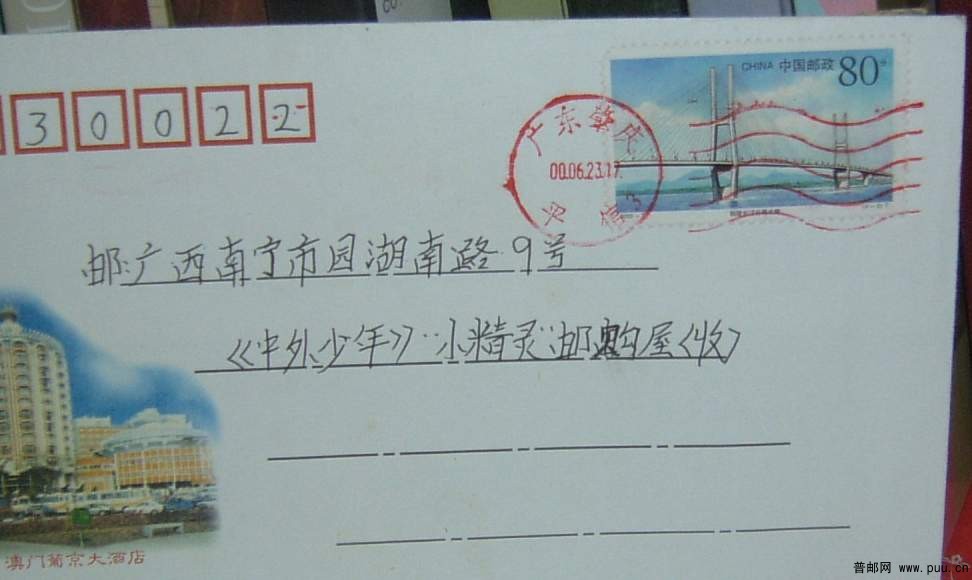 30022
CHINA 中国邮政 80分
广东肇庆
00.06.23.17
邮:广西南宁市园湖南路9号
《中外少年》"小精灵"邮购屋〈收〉
澳门葡京大酒店
普邮网 www.puu.cn